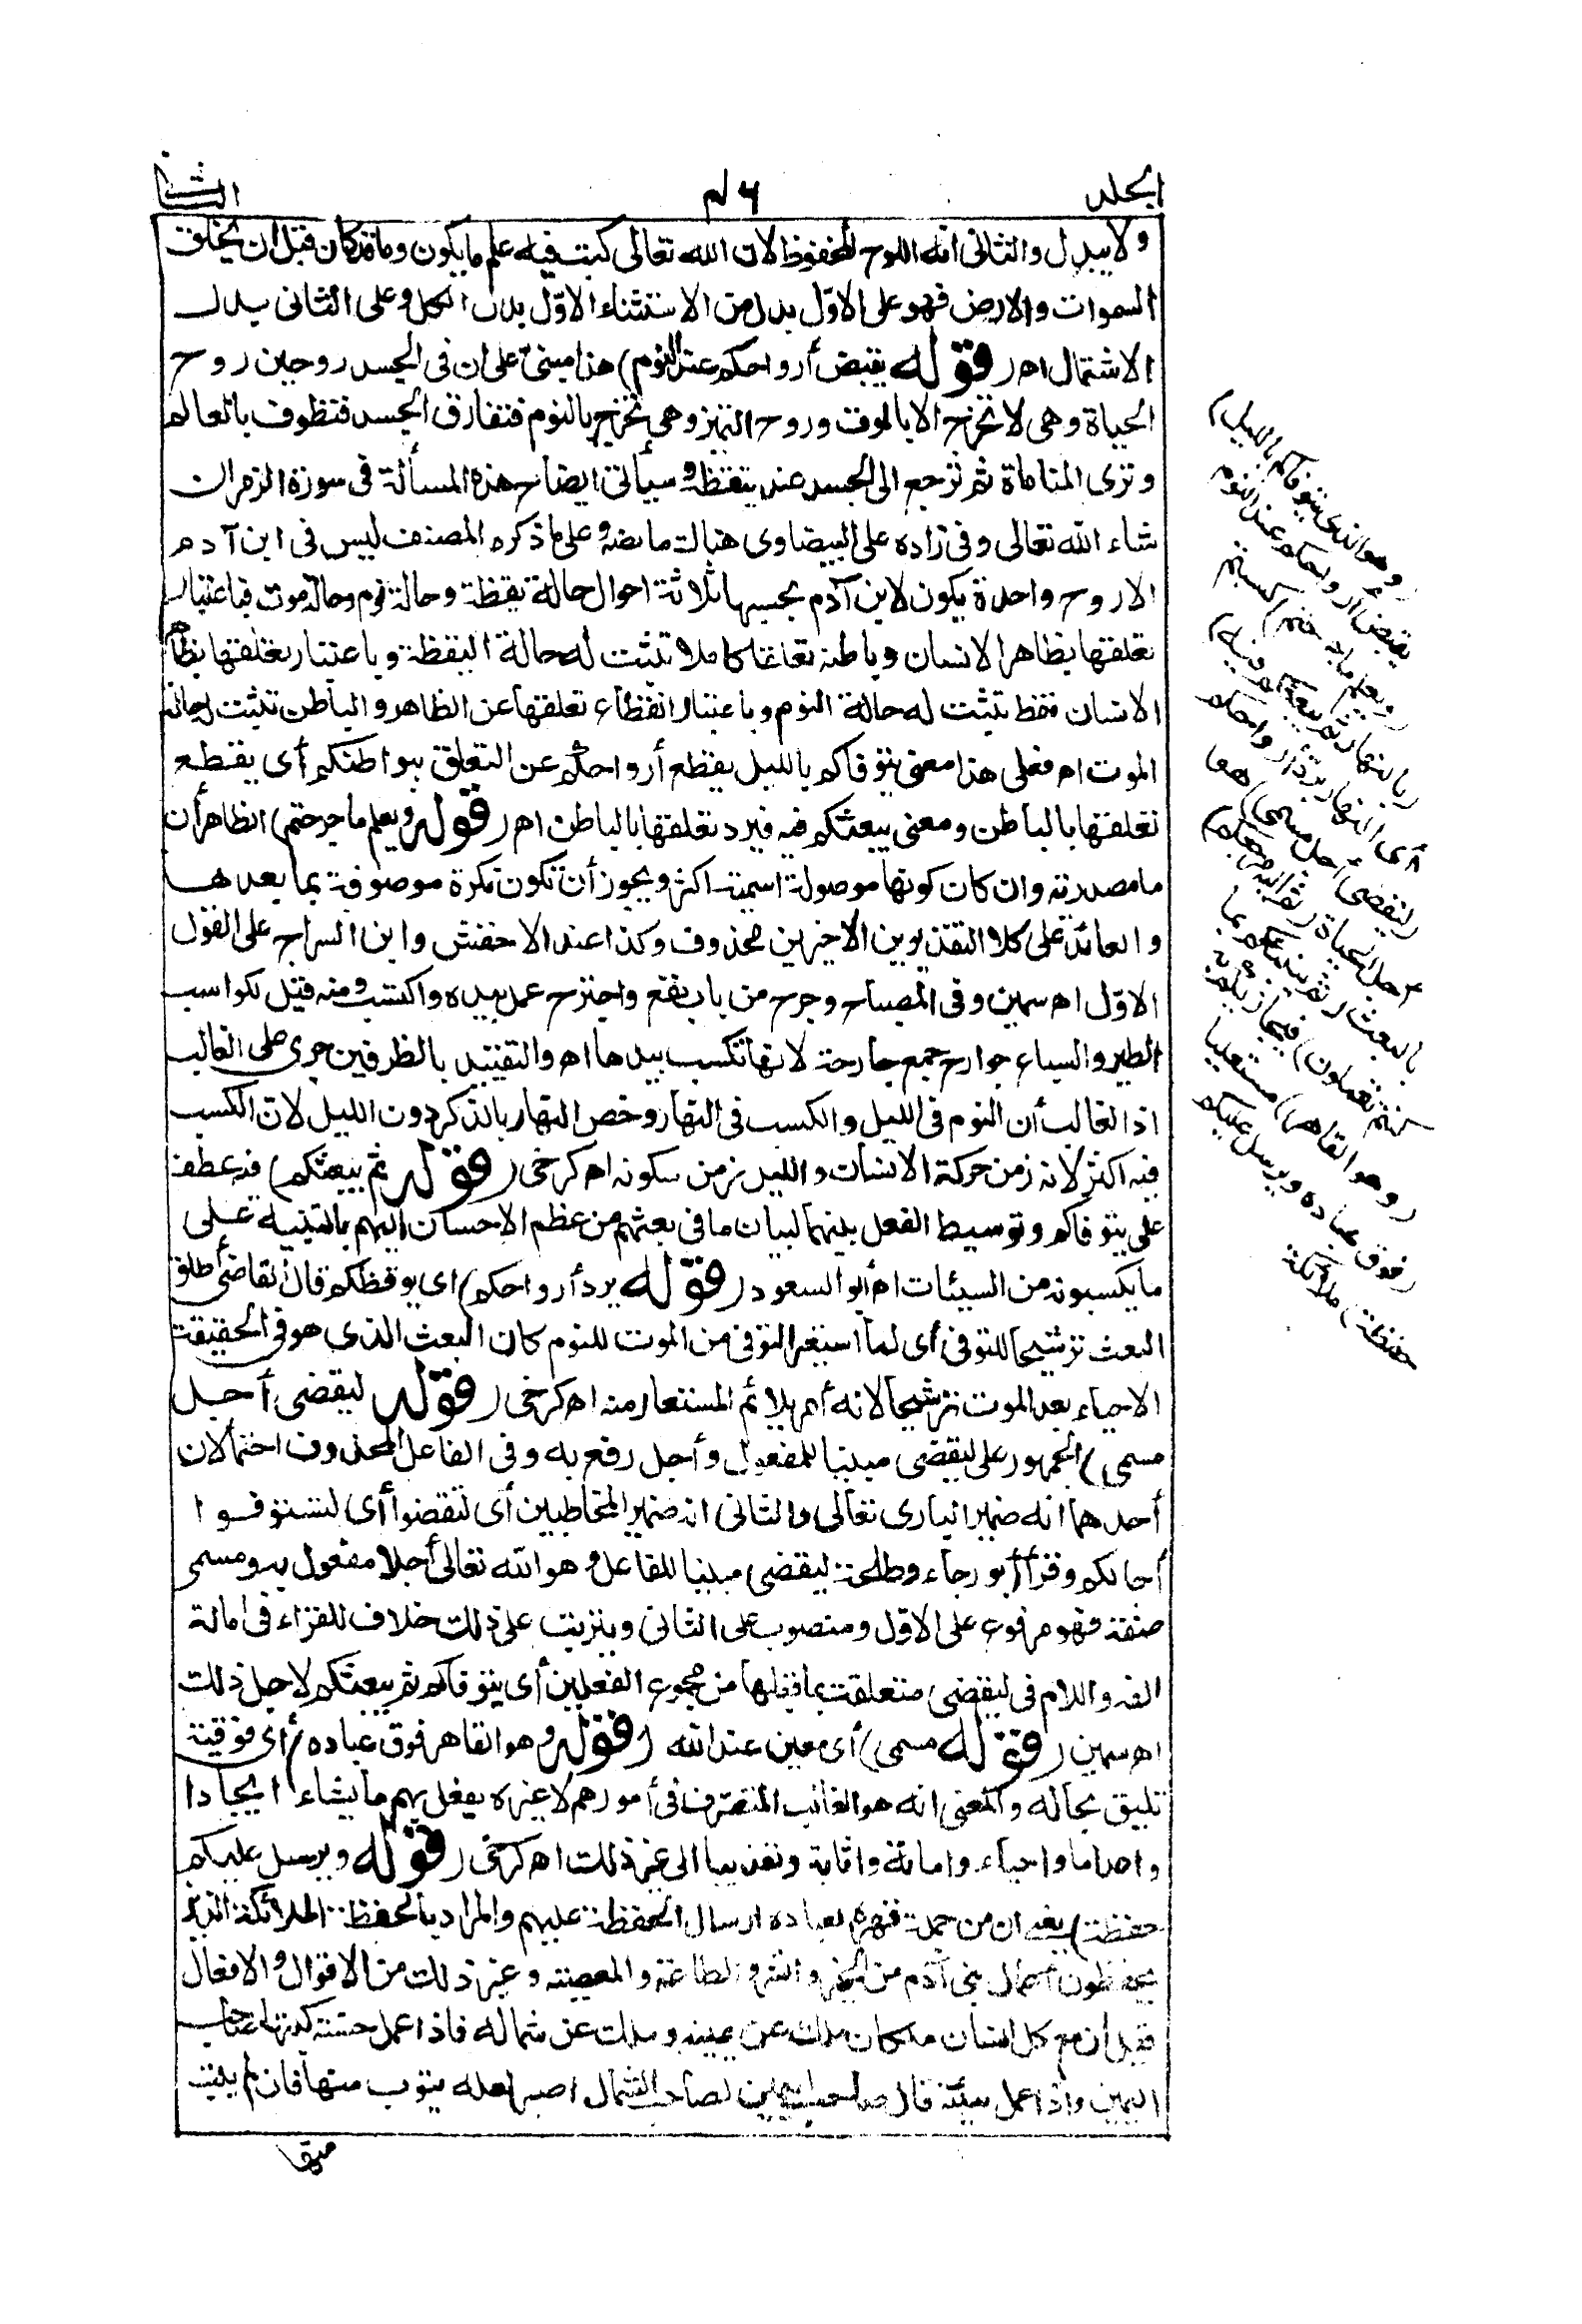 الجلد
٤٦
الثانى
ولا يبدل والثانى انه اللوح المحفوظ لان الله تعالى كتب فيه علم ما يكون وما قد كان قبل ان يخلق
السموات والارض فهو على الاوّل بدل من الاستثناء الاوّل بدل الكل وعلى الثانى بدل
الاشتمال اھ (قوله يقبض أرواحكم عند النوم) هذا مبنىّ على ان فى الجسد روحين روح
الحياة وهى لا تخرج الا بالموت وروح التمييز وهى تخرج بالنوم فتفارق الجسد فتطوف بالعالم
وترى المنامات ثم ترجع الى الجسد عند تيقظه وسيأتى ايضاح هذه المسألة فى سورة الزمر ان
شاء الله تعالى وفى زاده على البيضاوى هنالك ما نصه وعلى ما ذكره المصنف ليس فى ابن آدم
الا روح واحدة يكون لابن آدم بحسبها ثلاثة احوال حالة يقظة وحالة نوم وحالة موت فباعتبار
تعلقها بظاهر الانسان وباطنه تعلقا كاملا تثبت له حالة اليقظة وباعتبار تعلقها بظاهر
الانسان فقط تثبت له حالة النوم وباعتبار انقطاع تعلقها عن الظاهر والباطن تثبت له حالة
الموت اھ فعلى هذا معنى يتوفاكم بالليل يقطع أرواحكم عن التعلق ببواطنكم أى يقطع
تعلقها بالباطن ومعنى يبعثكم فيه فيرد تعلقها بالباطن اھ (قوله ويعلم ما جرحتم) الظاهر أن
ما مصدرية وان كان كونها موصولة اسمية اكثر ويجوز أن تكون نكرة موصوفة بما بعدها
والعائد على كلا التقديرين الاخيرين محذوف وكذا عند الاخفش وابن السراج على القول
الاوّل اھ سمين وفى المصباح وجرح من باب نفع واجترح عمل بيده واكتسب ومنه قيل لكواسب
الطير والسباع جوارح جمع جارحة لانها تكسب بيدها اھ والتقييد بالظرفين جرى على الغالب
اذ الغالب أن النوم فى الليل والكسب فى النهار وخص النهار بالذكر دون الليل لان الكسب
فيه اكثر لانه زمن حركة الانسان والليل زمن سكونه اھ كرخى (قوله ثم يبعثكم) فيه عطف
على يتوفاكم وتوسيط الفعل بينهما لبيان ما فى بعثهم من عظم الاحسان اليهم بالتنبيه على
ما يكسبونه من السيئات اھ أبو السعود (قوله يرد أرواحكم) اى يوقظكم قال القاضى أطلق
البعث ترشيحا للتوفى أى لما استعير التوفى من الموت للنوم كان البعث الذى هو فى الحقيقة
الاحياء بعد الموت ترشيحا لانه أمر يلائم المستعار منه اھ كرخى (قوله ليقضى أجل
مسمى) الجمهور على ليقضى مبنيا للمفعول وأجل رفع به وفى الفاعل المحذوف احتمالان
أحدهما انه ضمير البارى تعالى والثانى انه ضمير المخاطبين أى لتقضوا أى لتستوفوا
أجالكم وقرأ أبو رجاء وطلحة ليقضى مبنيا للفاعل وهو الله تعالى أجلا مفعول به ومسمى
صفة فهو مرفوع على الاوّل ومنصوب على الثانى ويترتب على ذلك خلاف للقراء فى امالة
الفه واللام فى ليقضى متعلقة بما قبلها من مجموع الفعلين أى يتوفاكم ثم يبعثكم لاجل ذلك
اھ سمين (قوله مسمى) أى معين عند الله (قوله وهو القاهر فوق عباده) أى فوقية
تليق بحاله والمعنى انه هو الغالب المتصرف فى أمورهم لا غيره يفعل بهم ما يشاء ايجادا
واعداما واحياء واماتة واثابة وتعذيبا الى غير ذلك اھ كرخى (قوله ويرسل عليكم
حفظة) يعنى ان من جملة قهره لعباده ارسال الحفظة عليهم والمراد بالحفظة الملائكة الذين
يحفظون أعمال بنى آدم من الخير والشر والطاعة والمعصية وغير ذلك من الاقوال والافعال
قيل ان مع كل انسان ملكان ملك عن يمينه وملك عن شماله فاذا عمل حسنة كتبها صاحب
اليمين واذا عمل سيئة قال صاحب اليمين لصاحب الشمال اصبر لعله يتوب منها فان لم يتب
منها
(وهو الذى يتوفاكم بالليل)
يقبض ارواحكم عند النوم
(ويعلم ما جرحتم) كسبتم
(بالنهار ثم يبعثكم فيه)
أى النهار برد أرواحكم
(ليقضى أجل مسمى) هو
أجل الحياة (ثم اليه مرجعكم)
بالبعث (ثم ينبئكم بما
كنتم تعملون) فيجازيكم به
(وهو القاهر) مستعليا
(فوق عباده ويرسل عليكم
حفظة) ملائكة